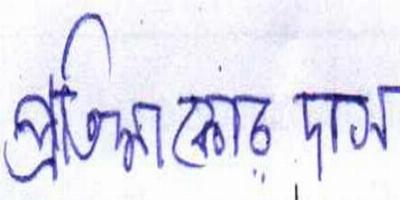 প্রতিমা দাস